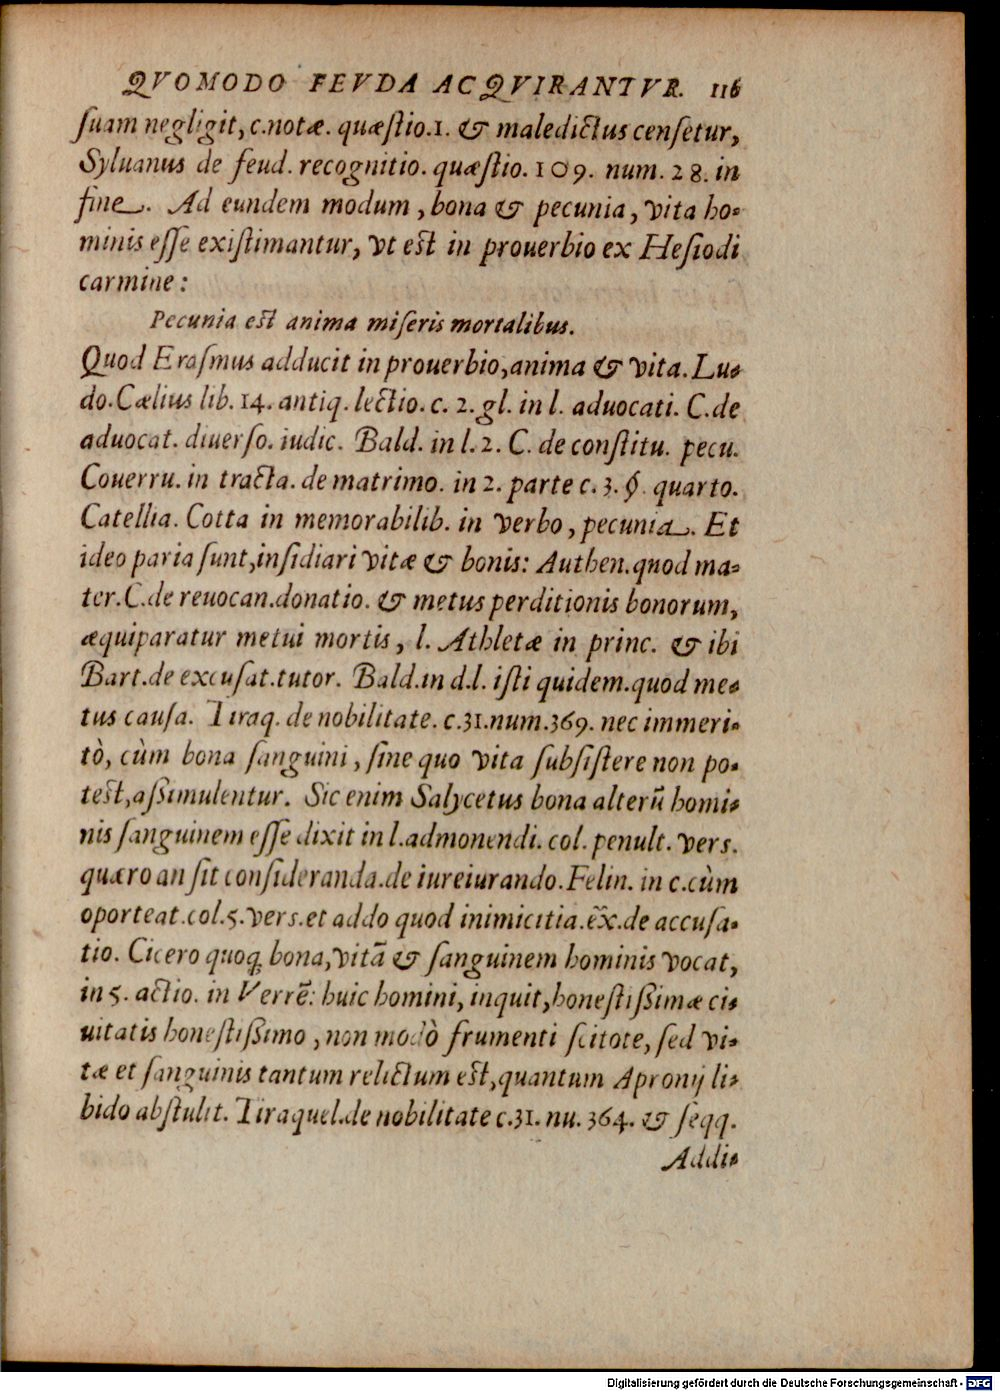 QVOMODO FEVDA ACQVIRANTVR. 116
ſuam negligit, c. notæ. quæſtio. 1. & maledictus cenſetur,
Syluanus de feud. recognitio. quæſtio. 109. num. 28. in
fine. Ad eundem modum, bona & pecunia, vita ho-
minis eſſe exiſtimantur, vt est in prouerbio ex Heſiodi
carmine:
Pecunia est anima miſeris mortalibus.
Quod Eraſmus adducit in prouerbio, anima & vita. Lu-
do. Cælius lib. 14. antiq. lectio. c. 2. gl. in l. aduocati. C. de
aduocat. diuerſo. iudic. Bald. in l. 2. C. de conſtitu. pecu.
Couerru. in tracta. de matrimo. in 2. parte c. 3. §. quarto.
Catellia. Cotta in memorabilib. in verbo, pecunia. Et
ideo paria ſunt, inſidiari vitæ & bonis: Authen. quod ma-
ter. C. de reuocan. donatio. & metus perditionis bonorum,
æquiparatur metui mortis, l. Athletæ in princ. & ibi
Bart. de excuſat. tutor. Bald. in d. l. iſti quidem. quod me-
tus cauſa. Tiraq. de nobilitate. c. 31. num. 369. nec immeri-
tò, cùm bona ſanguini, ſine quo vita ſubſiſtere non po-
test, aſſimulentur. Sic enim Salycetus bona alterũ homi-
nis ſanguinem eſſe dixit in l. admonendi. col. penult. vers.
quæro an ſit conſideranda. de iureiurando. Felin. in c. cùm
oporteat. col. 5. vers. et addo quod inimicitia. ex̃. de accuſa-
tio. Cicero quoq; bona, vitã & ſanguinem hominis vocat,
in 5. actio. in Verrẽ: huic homini, inquit, honeſtiſſimæ ci-
uitatis honeſtiſſimo, non modò frumenti ſcitote, ſed vi-
tæ et ſanguinis tantum relictum est, quantum Apronij li-
bido abſtulit. Tiraquel. de nobilitate c. 31. nu. 364. & ſeqq.
Addi-
Digitalisierung gefördert durch die Deutsche Forschungsgemeinschaft - DFG